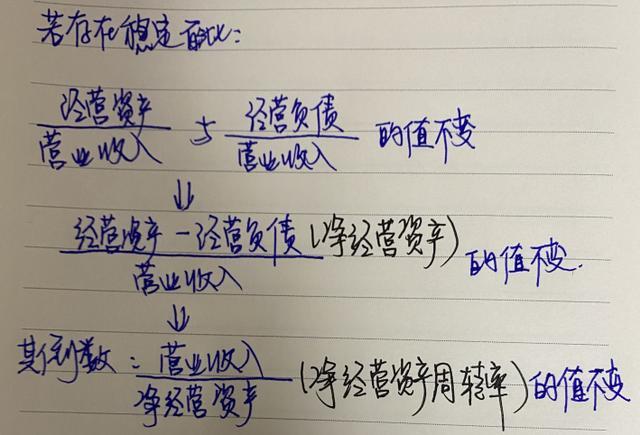 若存在稳定百分比：
经营资产 与 经营负债 的值不变
营业收入 营业收入
⇓
经营资产-经营负债(净经营资产) 的值不变.
营业收入
⇓
其倒数：营业收入 (净经营资产周转率)的值不变
净经营资产